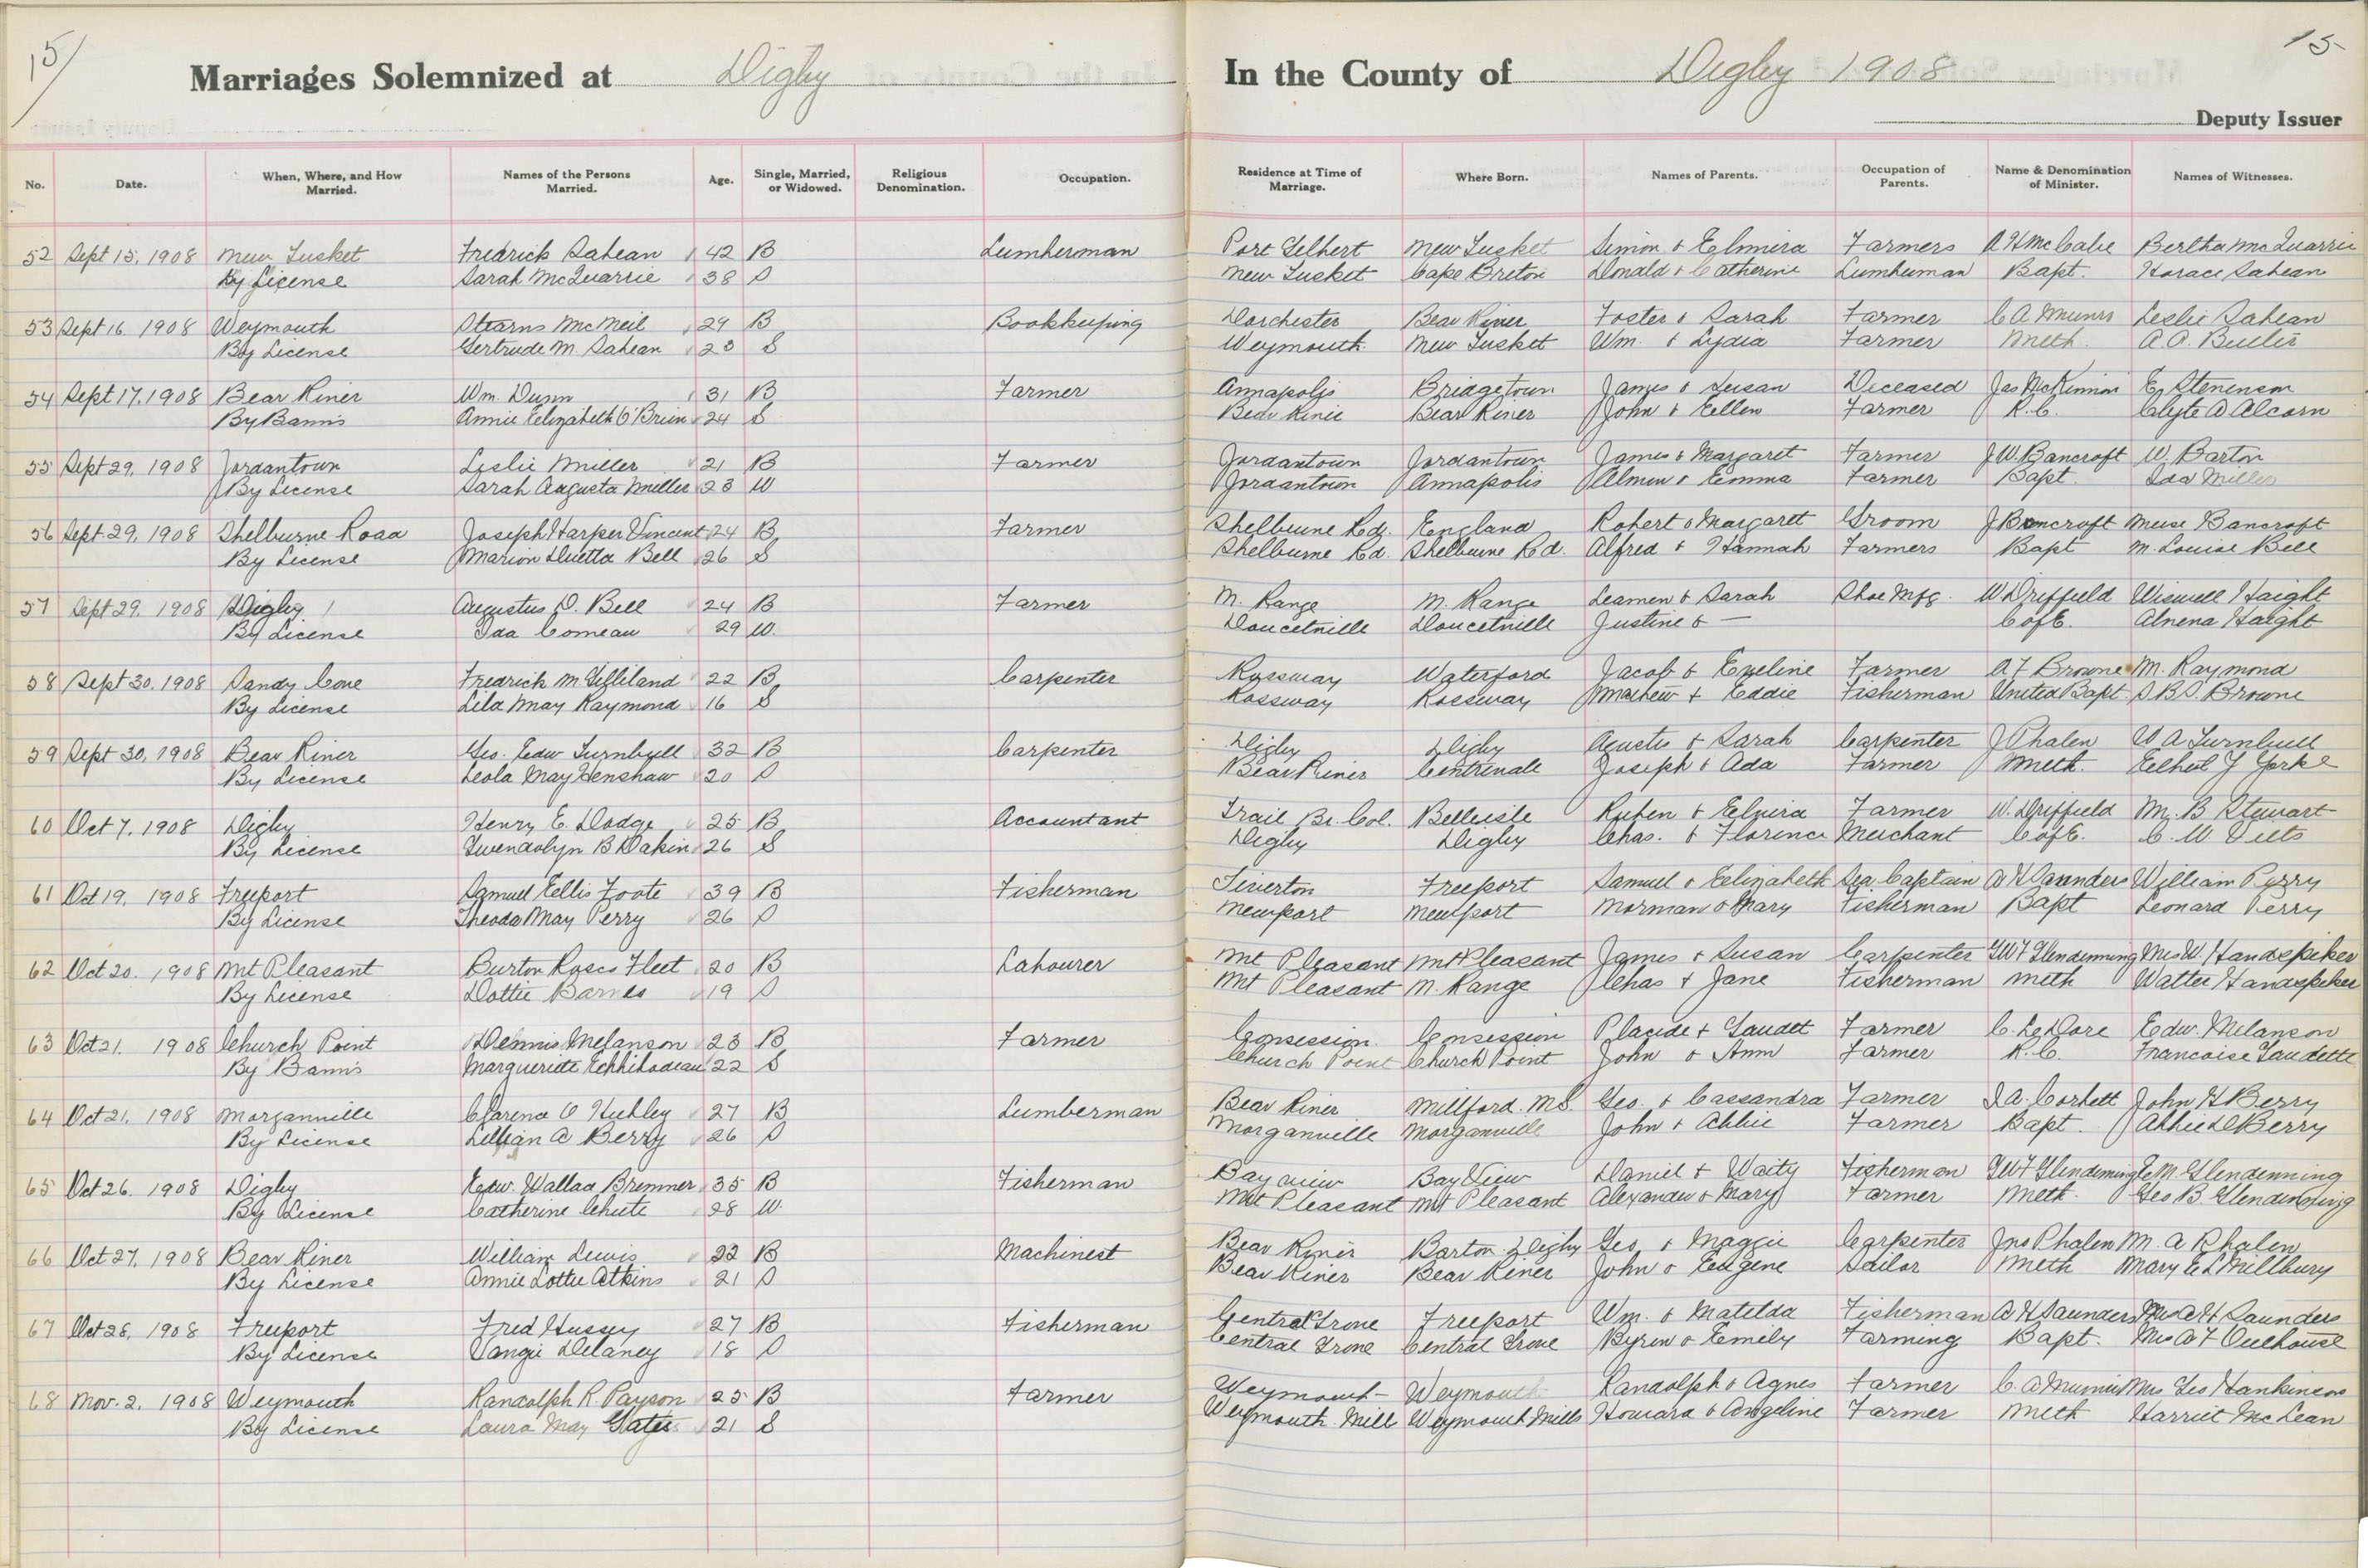 15/
15
Marriages Solemnized at Digby
In the County of Digby 1908
Deputy Issuer
No. Date. When, Where, and How Married. Names of the Persons Married. Age. Single, Married, or Widowed. Religious Denomination. Occupation. Residence at Time of Marriage. Where Born. Names of Parents. Occupation of Parents. Name & Denomination of Minister. Names of Witnesses.
52 Sept 15. 1908 New Tusket Fredrick Sabean 42 B Lumberman Port Gilbert New Tusket Simon & Elmira Farmers A H McCabe Bertha McQuarrie
By License Sarah McQuarrie 38 S New Tusket Cape Breton Donald & Catherine Lumberman Bapt. Horace Sabean
53 Sept 16 1908 Weymouth Stearns McNeil 29 B Bookkeeping Dorchester Bear River Foster & Sarah Farmer C A Munro Leslie Sabean
By License Gertrude M. Sabean 23 S Weymouth New Tusket Wm. & Lydia Farmer Meth. A. A.
54 Sept 17. 1908 Bear River Wm. Dunn 31 B Farmer Annapolis Bridgetown James & Susan Deceased Jas McKinnon E. Stevenson
By Banns Annie Elizabeth O'Brien 24 S Bear River Bear River John & Ellen Farmer R. C. Clyte A Alcorn
55 Sept 29. 1908 Jordantown Leslie Miller 21 B Farmer Jordantown Jordantown James & Margaret Farmer J W. Bancroft W. Barton
By License Sarah Augusta Miller 23 W Jordantown Annapolis & Emma Farmer Bapt Ida Miller
56 Sept. 29. 1908 Shelburne Road Joseph Harper Vincent 24 B Farmer Shelburne Rd. England Robert & Margaret Groom J Bancroft Bancroft
By License Marion Duetta Bell 26 S Shelburne Rd. Shelburne Rd. Alfred & Hannah Farmers Bapt M. Louise Bell
57 Sept 29. 1908 Digby Augustus D. Bell 24 B Farmer M. Range M. Range Leamen & Sarah Shoe Mfg. W Driffield Wiswell Haight
By License Ida Comeau 29 W. Doucetville Doucetville Justine & — C of E. Alvena Haight
58 Sept 30. 1908 Sandy Cove Fredrick M Gilliland 22 B Carpenter Rossway Waterford Jacob & Eveline Farmer A F Browne M. Raymond
By License Lila May Raymond 16 S Rossway Rossway Mathew + Eddie Fisherman United Bapt. S. B. S. Browne
59 Sept 30, 1908 Bear River Geo. Edw Turnbull 32 B Carpenter Digby Digby Agustus & Sarah Carpenter J Phalen W A Turnbull
By License Leola May Henshaw 20 S Bear River Centrevale Joseph & Ada Farmer Meth. Ethel J Yorke
60 Oct 7, 1908 Digby Henry E. Dodge 25 B Accountant Trail Br. Col. Belleisle Ruben & Elvira Farmer W. Driffield M. B Stewart
By License Gwendolyn B Dakin 26 S Digby Digby Chas. & Florence Merchant C of E. C. W Viets
61 Oct 19, 1908 Freeport Samuel Ellis Foote 39 B Fisherman Tiverton Freeport Samuel & Elizabeth Sea Captain A H Saunders William Perry
By License Theoda May Perry 26 S Newport Newport Norman & Mary Fisherman Bapt Leonard Perry
62 Oct 20, 1908 Mt Pleasant Burton Fleet 20 B Labourer Mt Pleasant Mt Pleasant James & Susan Carpenter G W F Glendenning Mrs W. Handspiker
By License Dottie Barnes 19 S Mt Pleasant M. Range Chas + Jane Fisherman Meth Walter Handspiker
63 Oct 21. 1908 Church Point Dennis Melanson 23 B Farmer Consession Consession Placide + Gaudet Farmer C. LeDore Edw. Melanson
By Banns Marguerite 22 S Church Point Church Point John & Ann Farmer R. C. Francoise Gaudette
64 Oct 21, 1908 Morganville Clarence O Hubley 27 B Lumberman Bear River Millford. N.S. Geo. & Cassandra Farmer I. A. Corbett John H Berry
By License Lillian A Berry 26 S Morganville Morganville John & Abbie Farmer Bapt. Abbie D Berry
65 Oct 26. 1908 Digby Edw. Wallace Bremner 35 B Fisherman Bay view Bay View Daniel + Waity Fisherman G W F Glendenning E. M. Glendenning
By License Catherine Chute 28 W. Mt Pleasant Mt Pleasant Alexander & Mary Farmer Meth. Geo B. Glendenning
66 Oct 27, 1908 Bear River William Lewis 22 B Machinest Bear River Barton Digby Geo & Maggie Carpenter Jno Phalen M. A Phalen
By License Annie Lottie Atkins 21 S Bear River Bear River John & Eugene Sailor Meth Mary E L Millbury
67 Oct 28, 1908 Freeport Fred Hussey 27 B Fisherman Central Grove Freeport Wm. & Matilda Fisherman A H Saunders Mrs A H Saunders
By License Vangie Delaney 18 S Central Grove Central Grove Byron & Emely Farming Bapt. Mrs A F Outhouse
68 Nov. 2, 1908 Weymouth Randolph R. Payson 25 B Farmer Weymouth Weymouth Randolph & Agnes Farmer C. A Munro Mrs Geo Hankinson
By License Laura May Gates 21 S Weymouth Mill Weymouth Mills Howard & Angeline Farmer Meth Harriet McLean